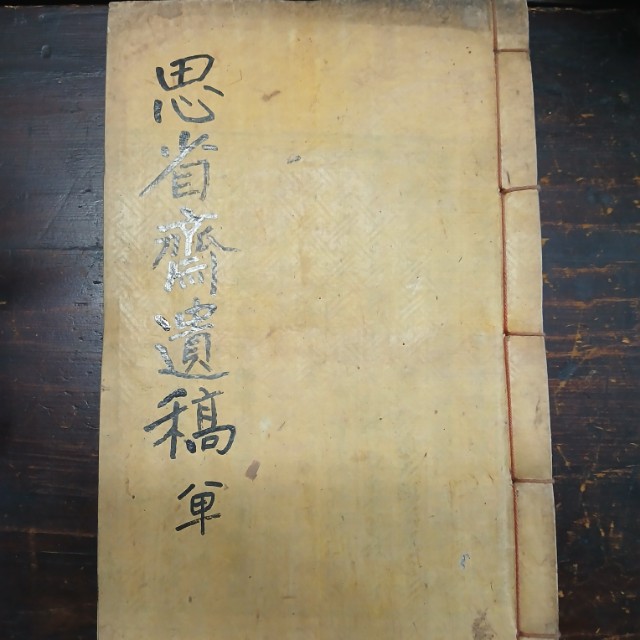 思省齋遺稿 单